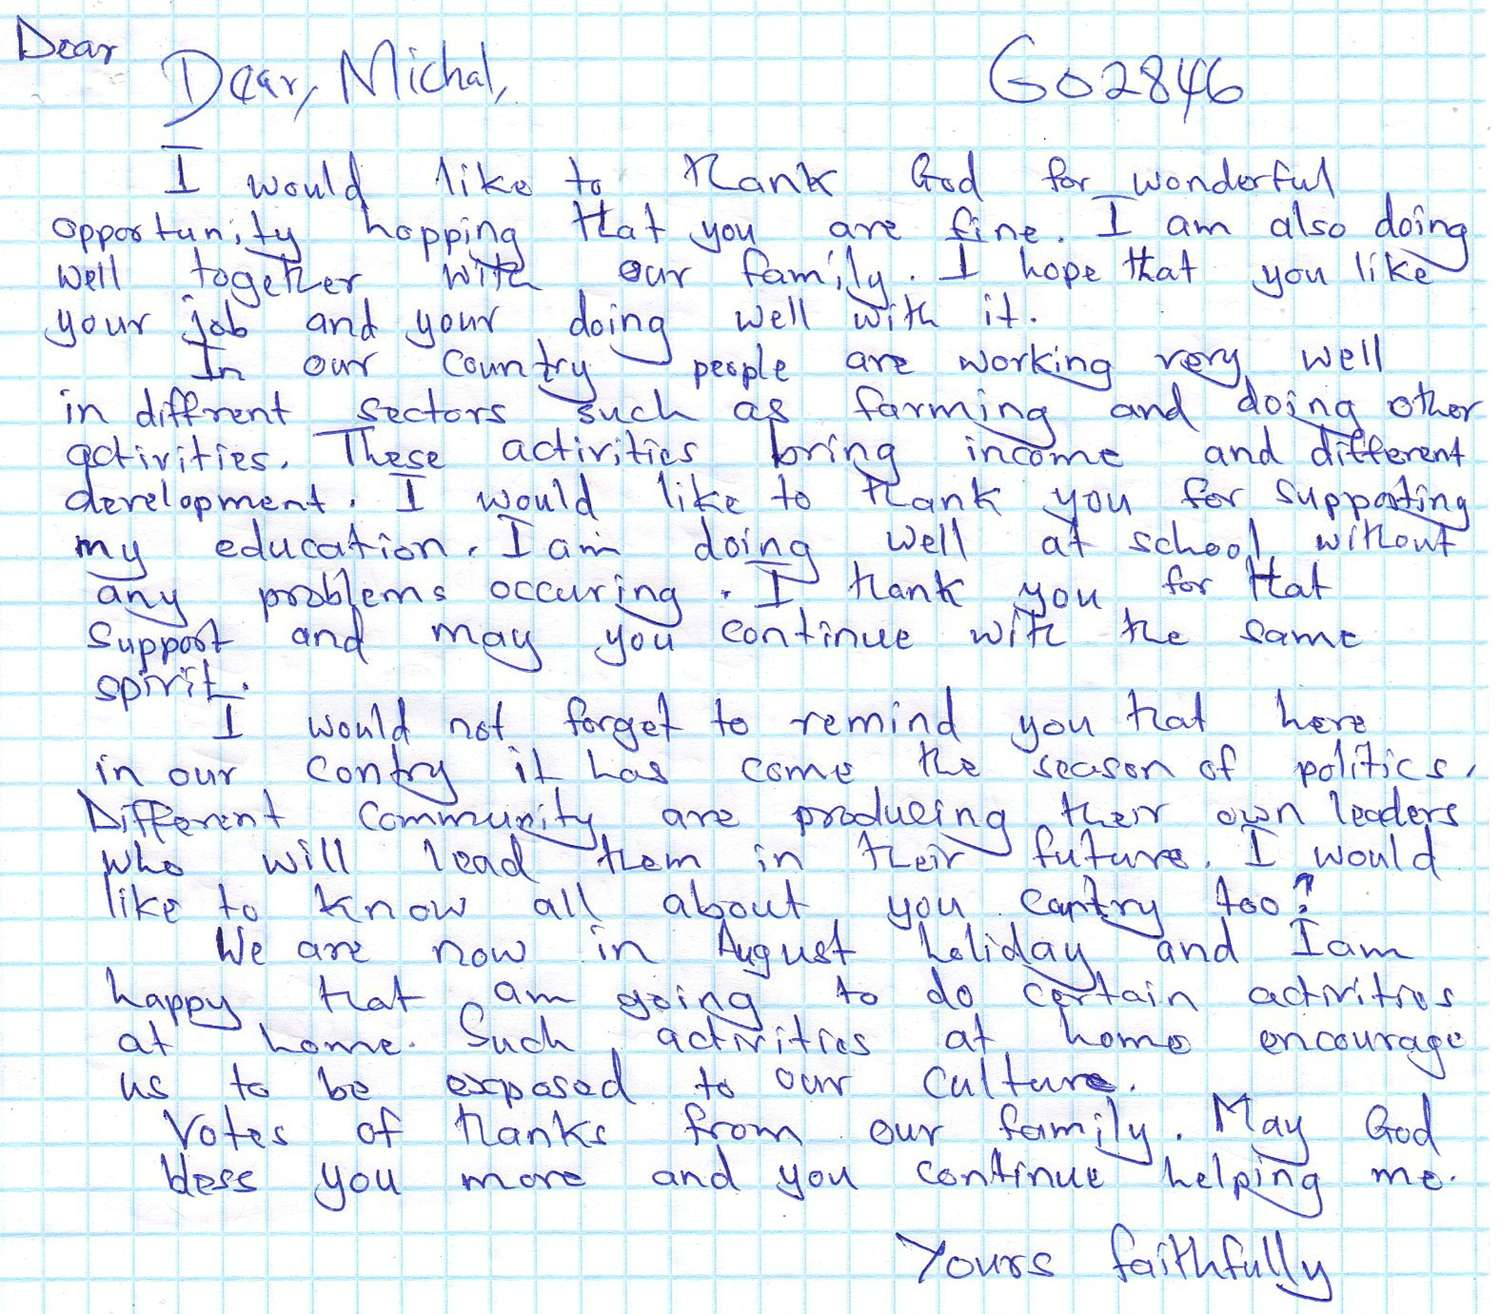 Dear
Dear, Michal, G02846
I would like to thank God for wonderful
opportunity hopping that you are fine. I am also doing
well together with our family. I hope that you like
your job and your doing well with it.
In our country people are working very well
in diffrent sectors such as farming and doing other
activities. These activities bring income and different
development. I would like to thank you for supporting
my education. I am doing well at school without
any problems occuring. I thank you for that
support and may you continue with the same
spirit.
I would not forget to remind you that here
in our contry it has come the season of politics.
Different community are producing their own leaders
who will lead them in their future. I would
like to know all about you contry too?
We are now in August holiday and I am
happy that am going to do certain activities
at home. Such activities at home encourage
us to be exposed to our culture.
Votes of thanks from our family. May God
bless you more and you continue helping me.
Yours faithfully